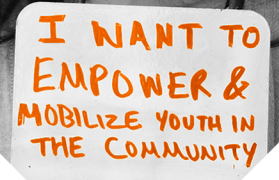 I WANT TO
EMPOWER &
MOBILIZE YOUTH IN
THE COMMUNITY